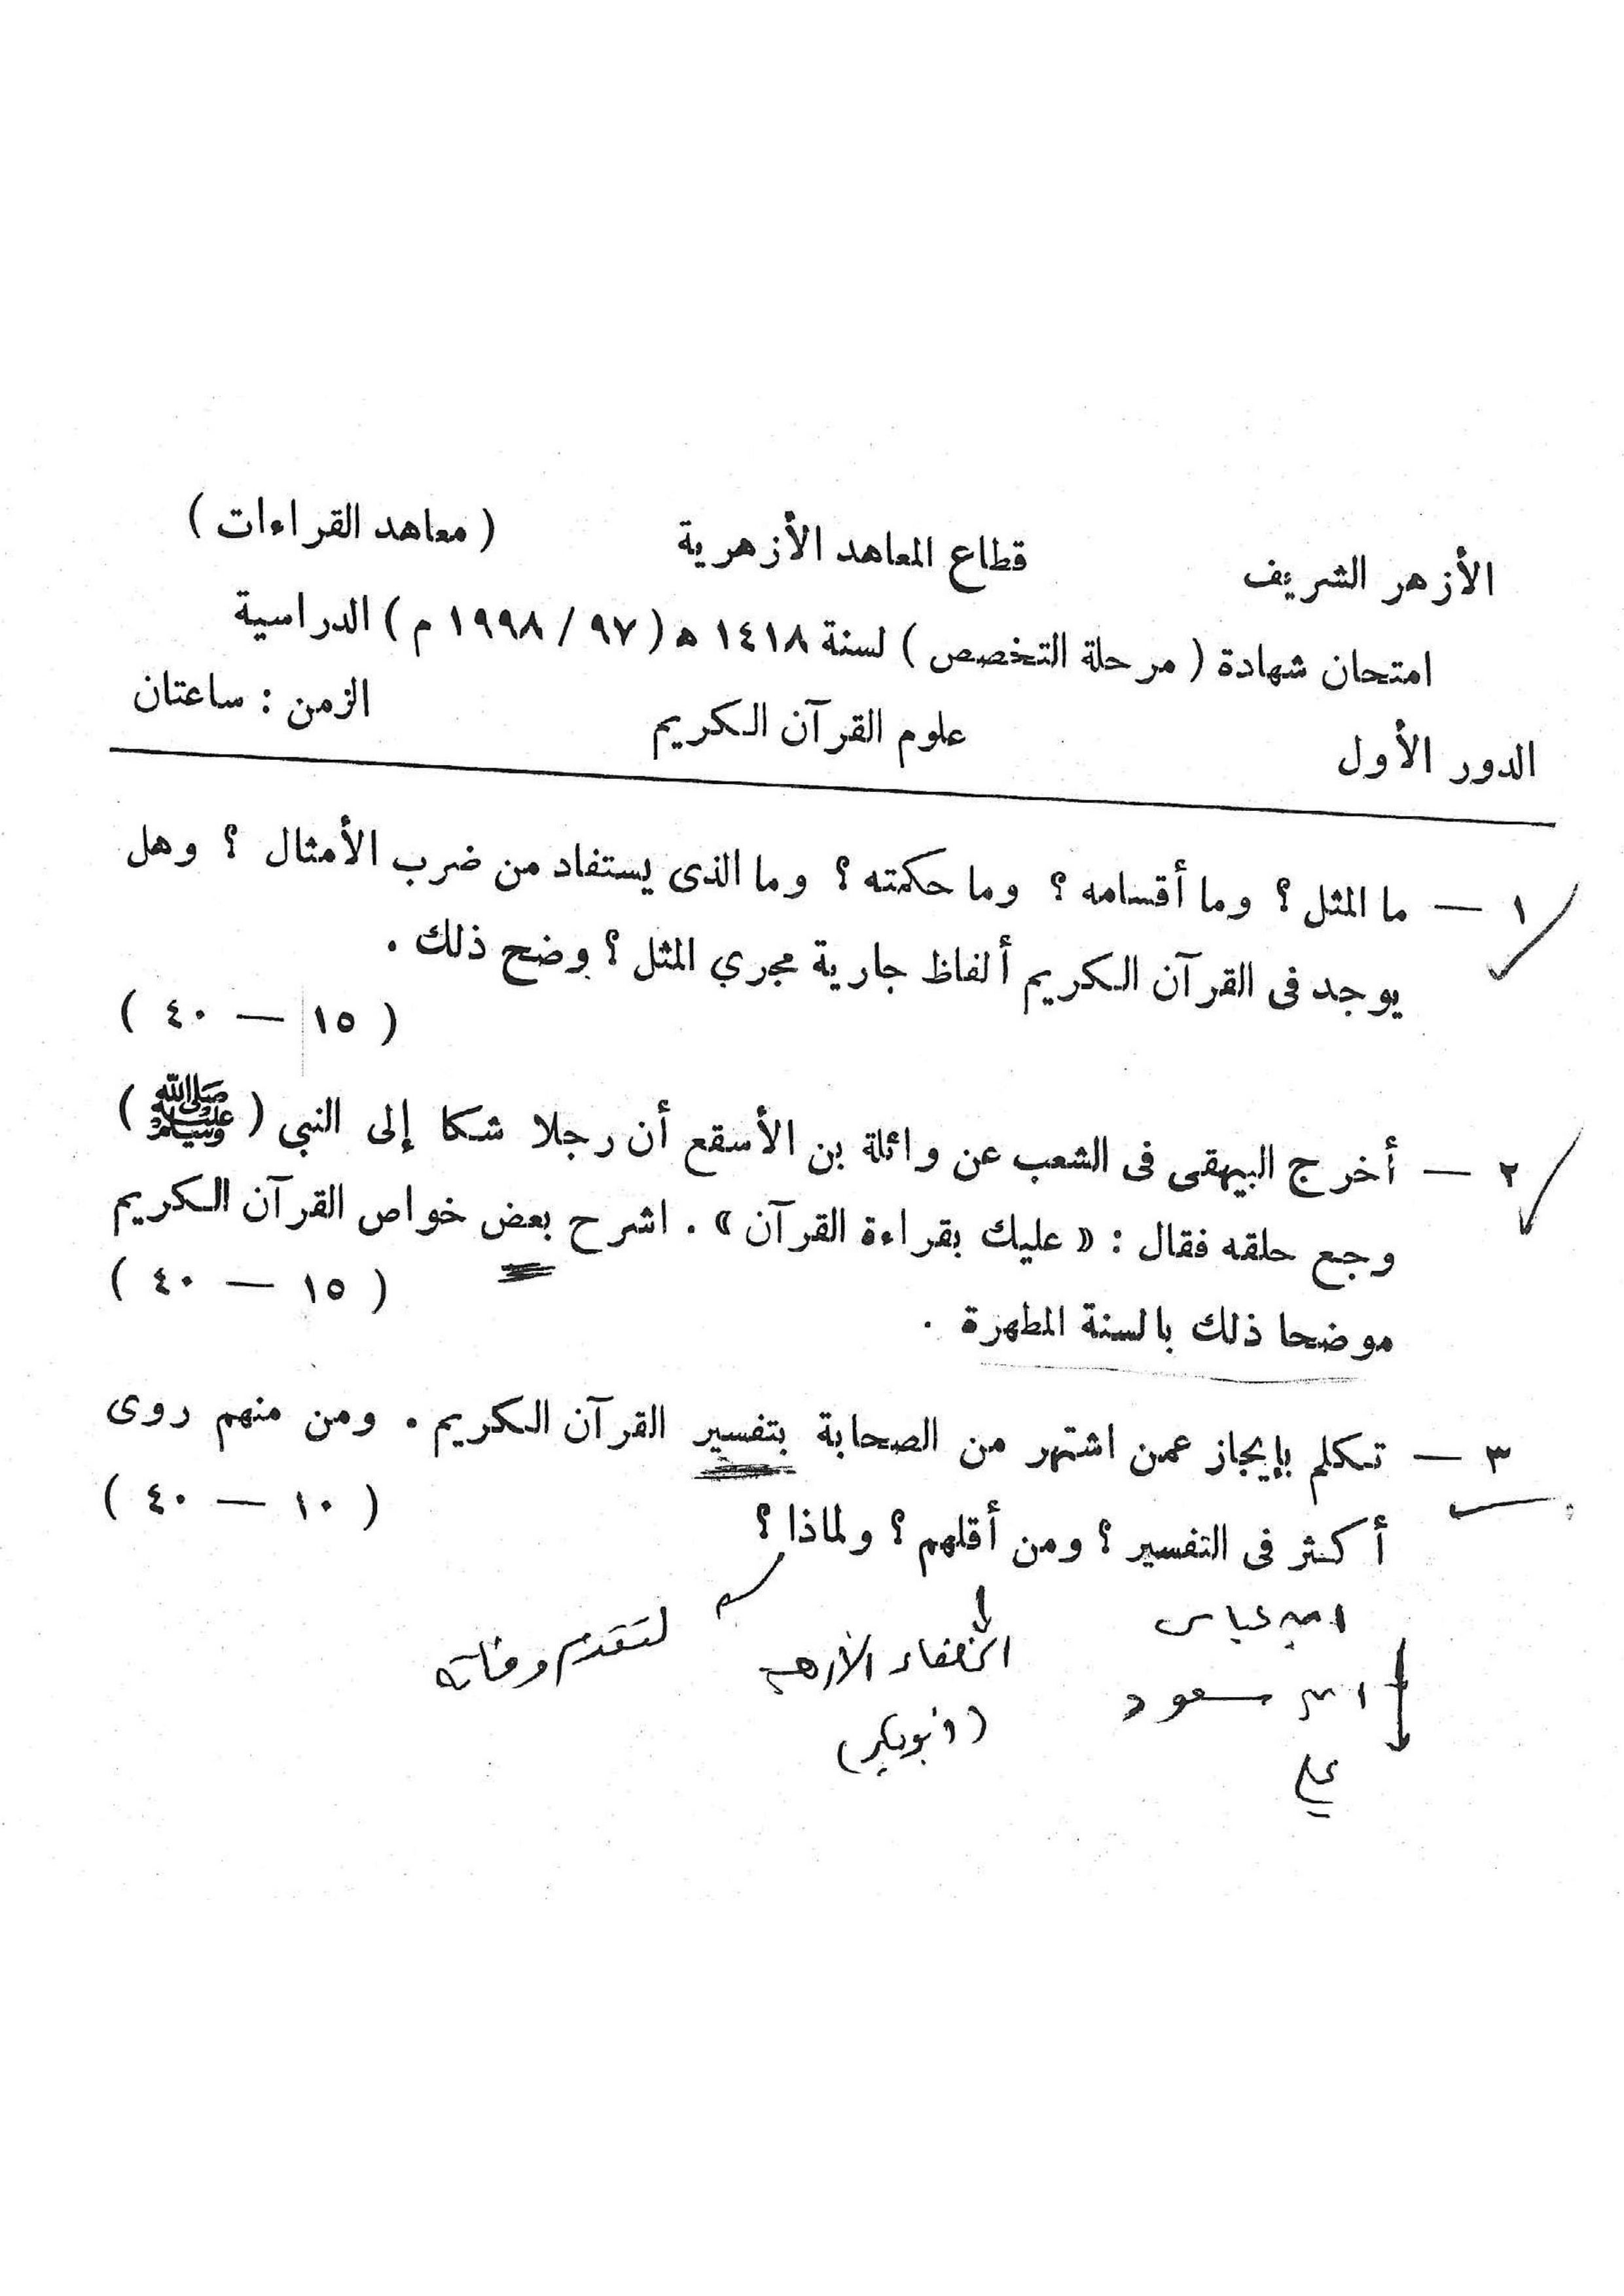 الأزهر الشريف قطاع المعاهد الأزهرية ( معاهد القراءات )
امتحان شهادة ( مرحلة التخصص ) لسنة ١٤١٨ ه ( ٩٧ / ١٩٩٨ م ) الدراسية
الدور الأول علوم القرآن الكريم الزمن : ساعتان
١ — ما المثل ؟ وما أقسامه ؟ وما حكمته ؟ وما الذى يستفاد من ضرب الأمثال ؟ وهل
يوجد فى القرآن الكريم ألفاظ جارية مجري المثل ؟ وضح ذلك .
( ١٥ — ٤٠ )
٢ — أخرج البيهقى فى الشعب عن واثلة بن الأسقع أن رجلا شكا إلى النبي ( ﷺ )
وجع حلقه فقال : « عليك بقراءة القرآن » . اشرح بعض خواص القرآن الكريم
موضحا ذلك بالسنة المطهرة .
( ١٥ — ٤٠ )
٣ — تكلم بإيجاز عمن اشتهر من الصحابة بتفسير القرآن الكريم . ومن منهم روى
أكثر فى التفسير ؟ ومن أقلهم ؟ ولماذا ؟
( ١٠ — ٤٠ )
ابن عباس
الخلفاء الأربعة
لتقدم وفاته
ابن مسعود
(أبوبكر)
علي